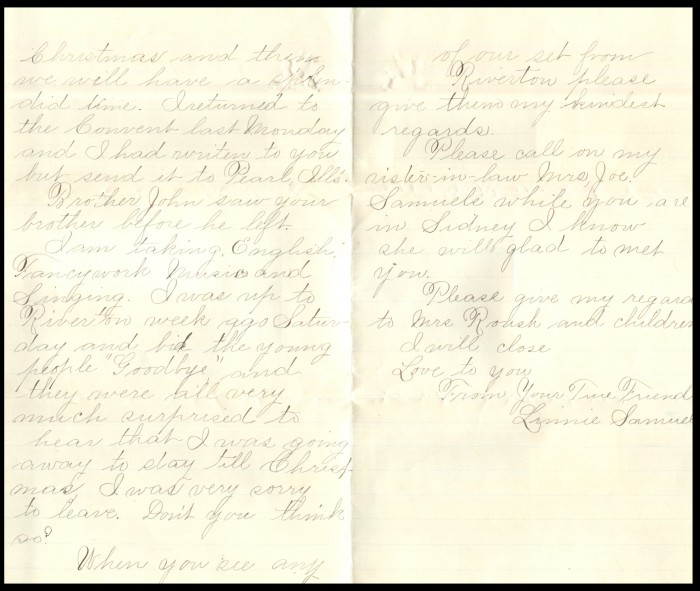 Christmas and then
we will have a splen-
did time. I returned to
the Convent last Monday
and I had writen to you
but send it to Pearl, Ills.
Brother John saw your
brother before he left.
I am taking English,
Fancywork Music and
Singing. I was up to
Riverton week ago Satur-
day and bid the young
people "Goodbye" and
they were all very
much surprised to
hear that I was going
away to stay till Christ-
mas, I was very sorry
to leave. Don't you think
so?
When you see any
of our set from
Riverton please
give them my kindest
regards.
Please call on my
sister-in-law Mrs, Joe.
Samuels while you are
in Sidney I know
she will glad to met
you.
Please give my regard
to Mrs Roush and children
I will close
Love to you
From Your True Friend
Linnie Samuel